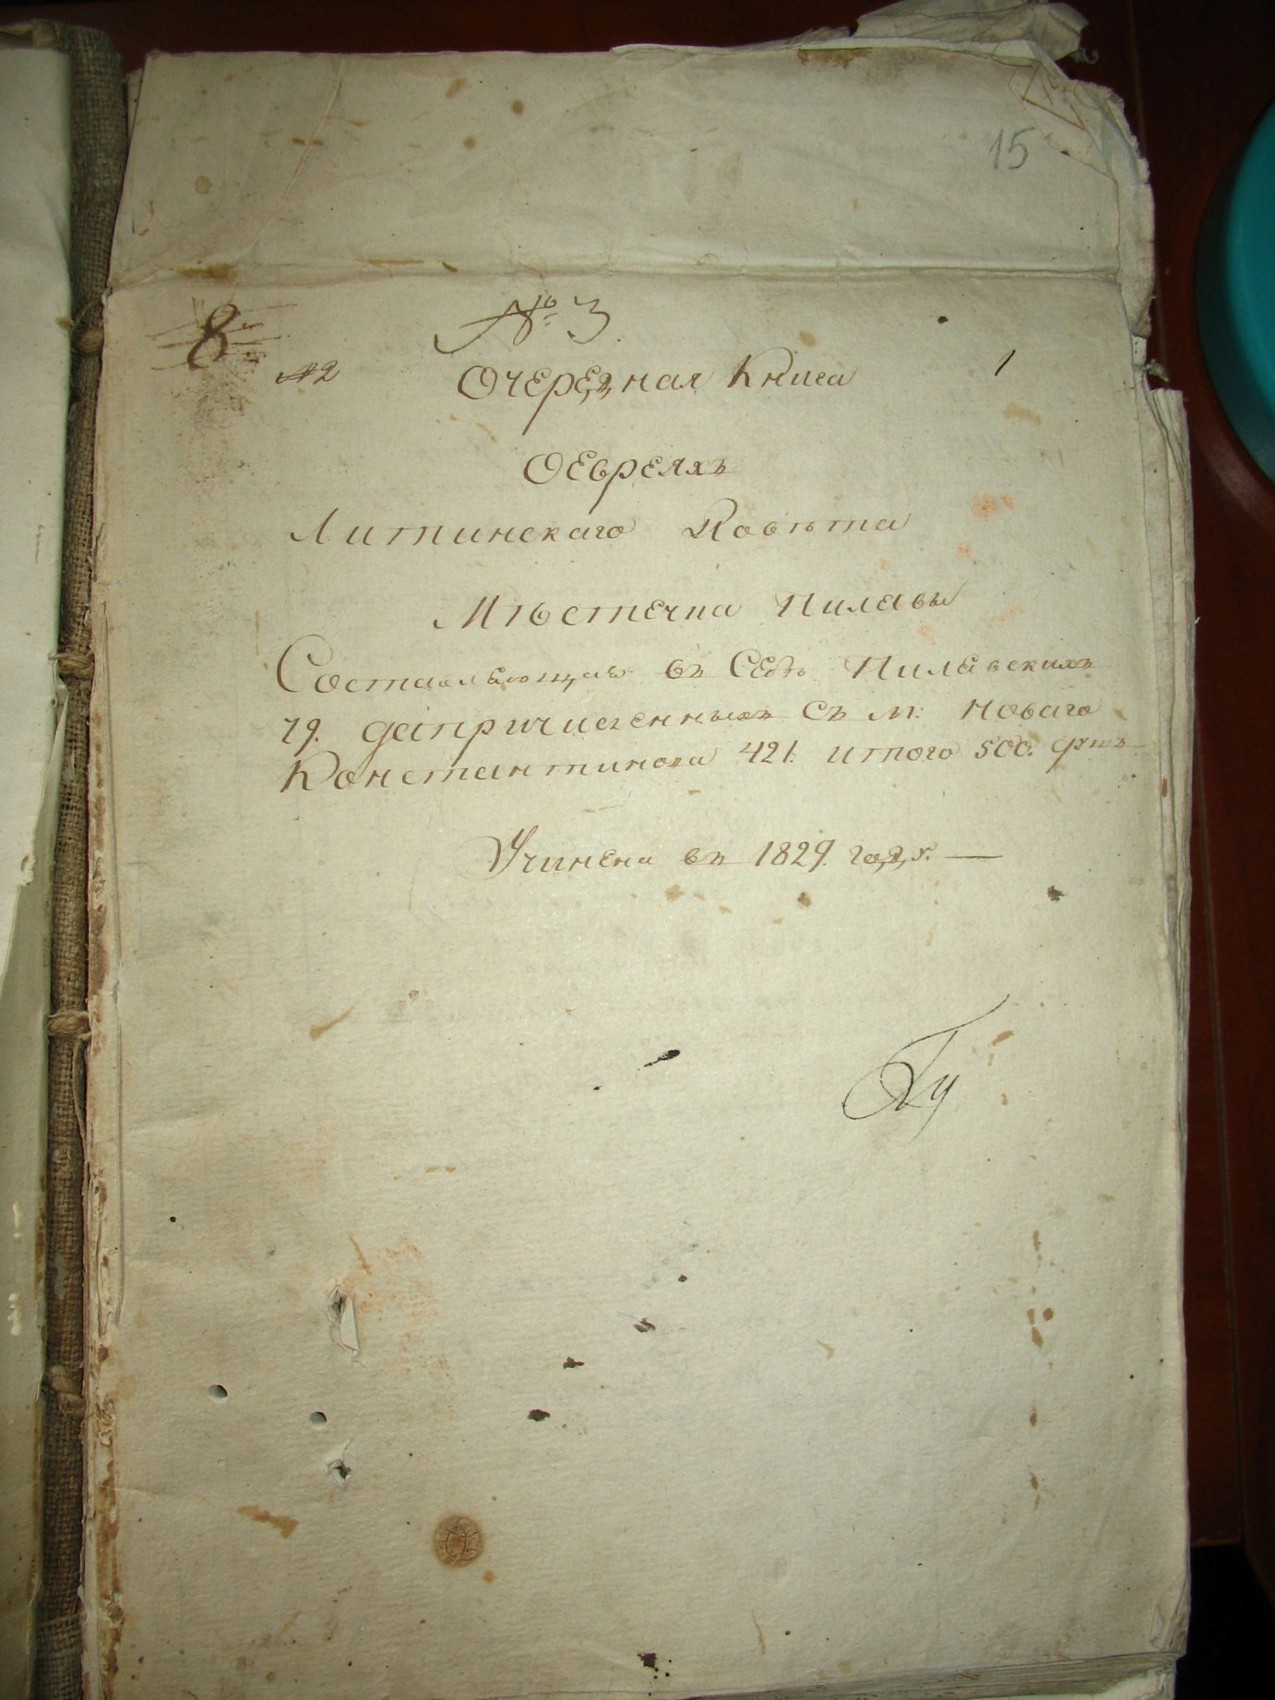 15
№ 3.
8
№2
Очередная Книга
1
Оевреяхъ
Литинскаго Повѣта
Мѣстечка Пилавы
Составляющая въ Себѣ Пилавскихъ
79. даприписенныхъ Съ м: Новаго
Константинова 421. итого 500.
Учинена въ 1829. году. —